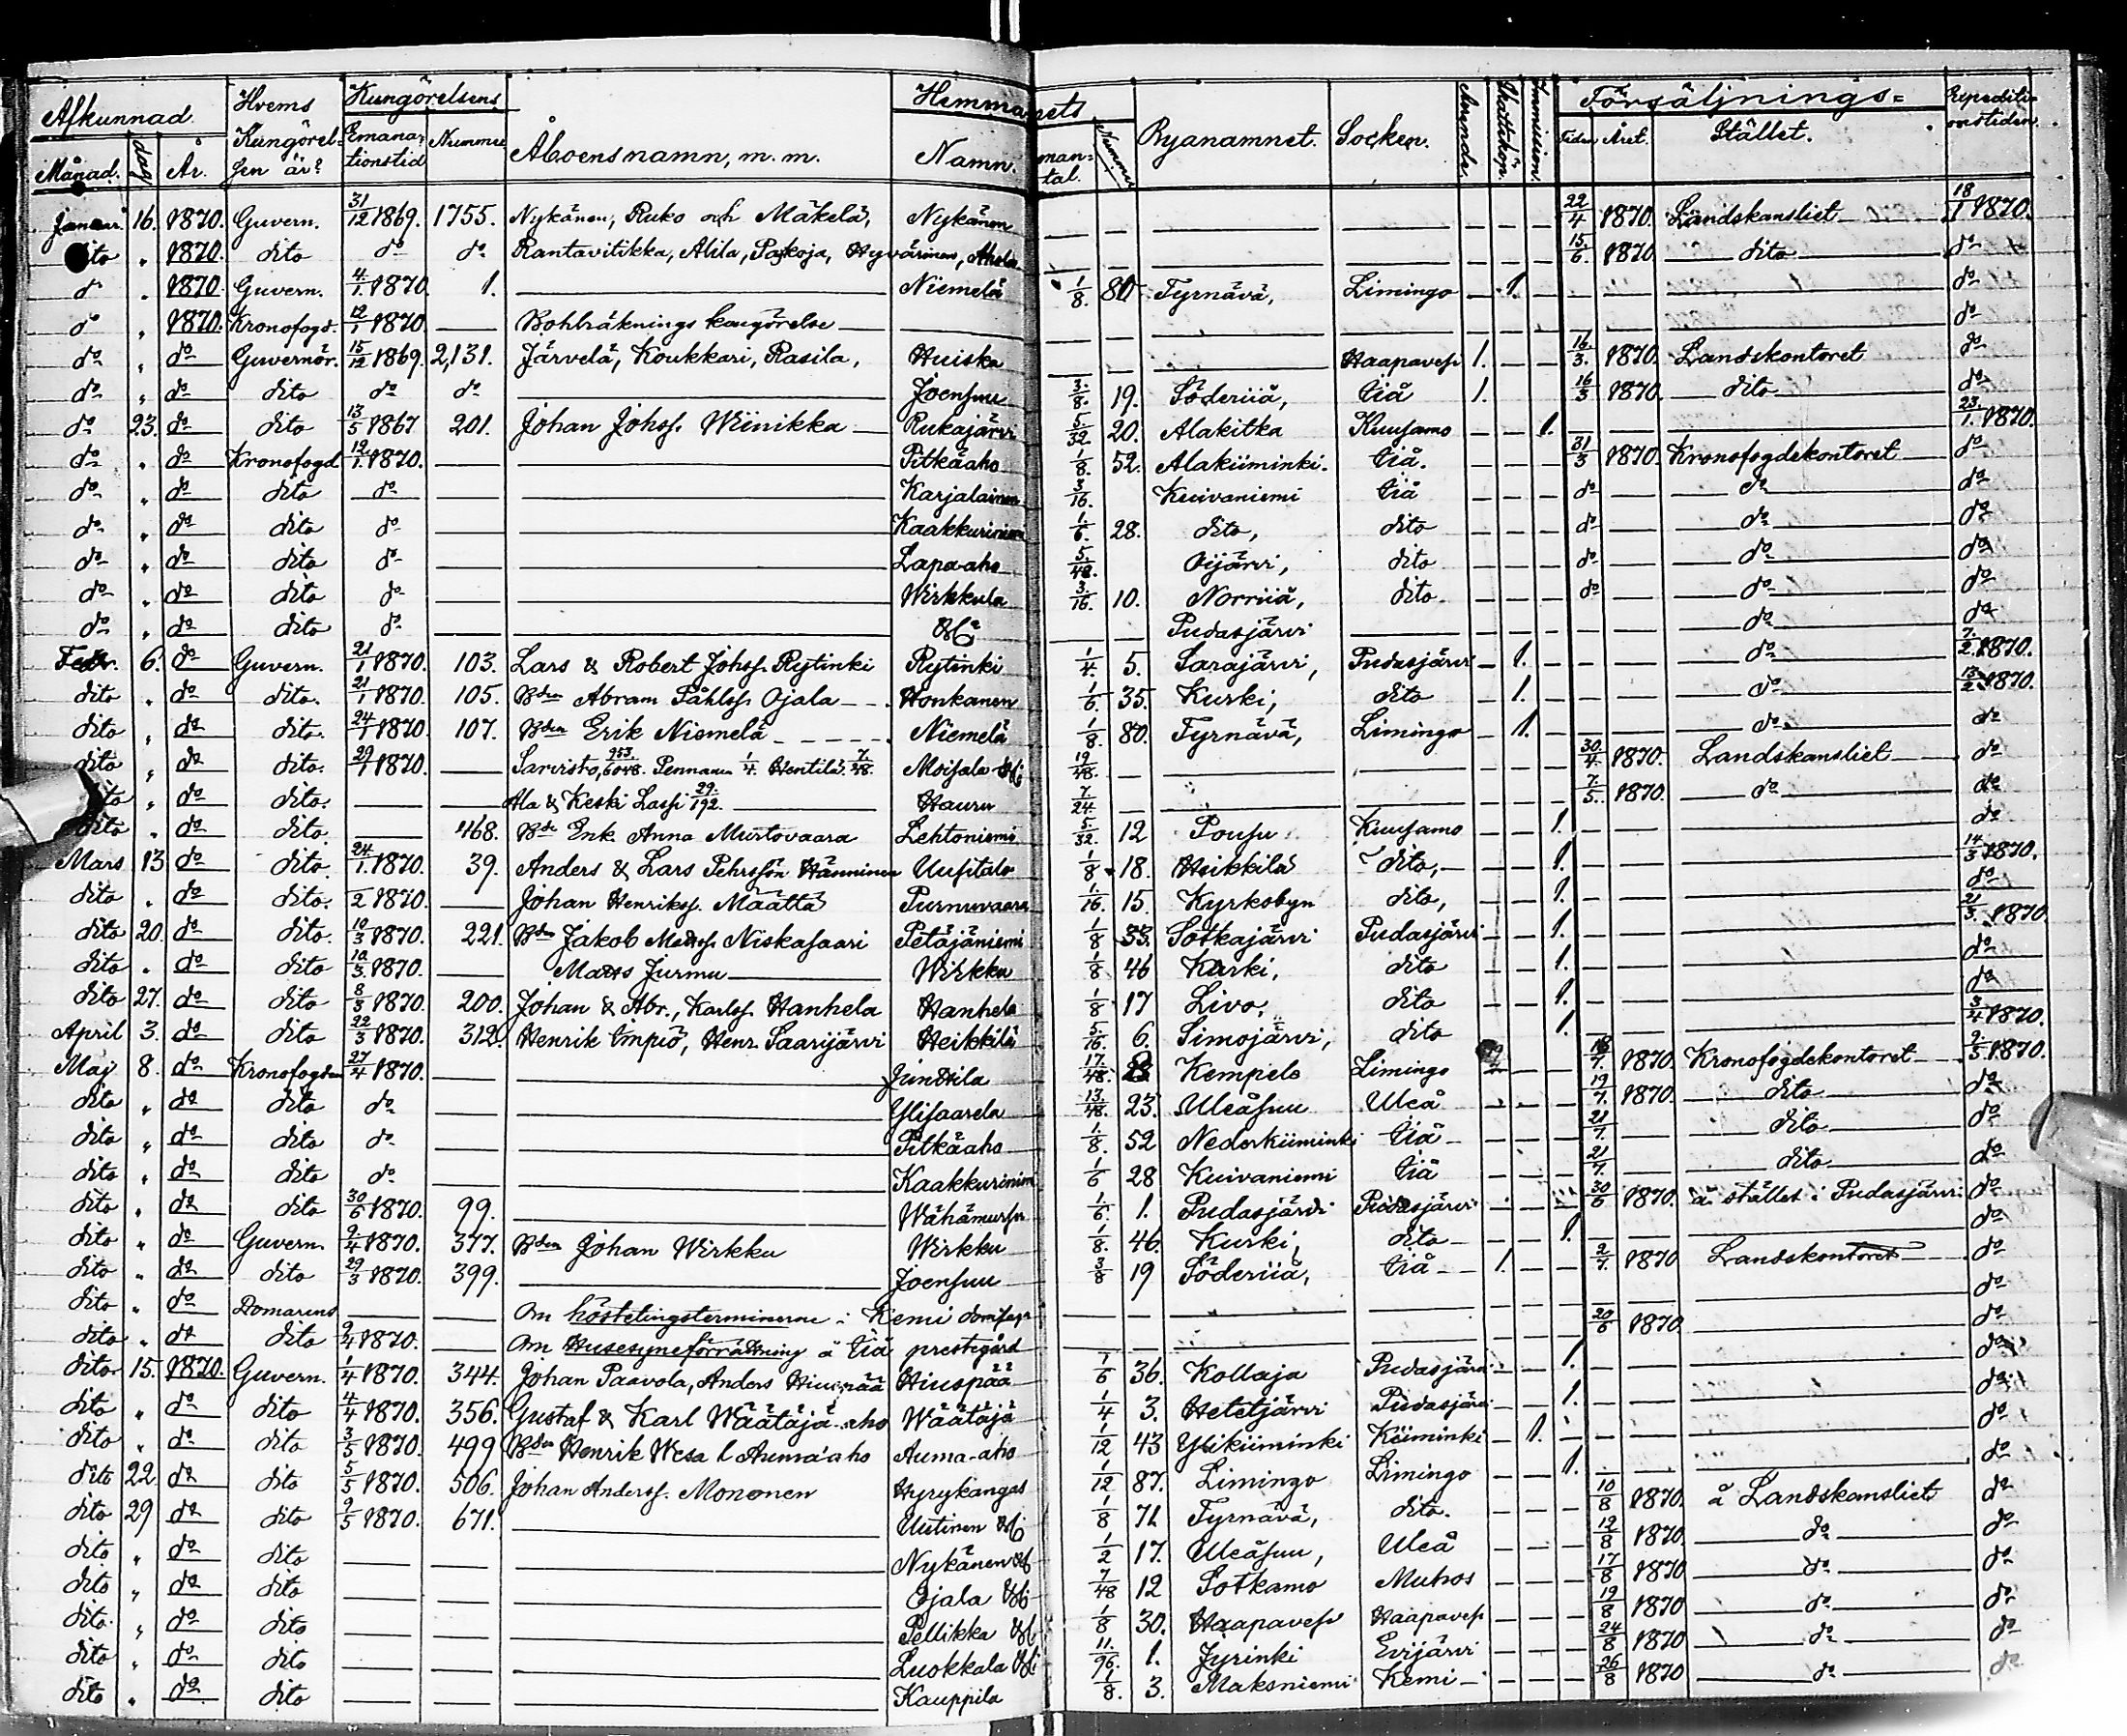 Afkunnad. Hvems Kungörel- sen är? Kungörelsens Hemmanets Försäljnings= Expediti- onstiden.
Månad. dag År. Emana- tionstid Nummer Åboens namn, m. m. Namn. man- tal. Nummer Byanamnet. Socken. Skattskön. Immission. Tiden Året. Stället.
Januari 16. 1870. Guvern. 31/12 1869. 1755. Nykänen, Ruko och Mäkelä, Nykänen 22/4 1870. Landskansliet 18/1 1870.
dito " 1870. dito do do Rantavitikka, Alila, Paskoja, Hyvärinen, Ahola 15/6. 1870. dito do
do " 1870. Guvern. 4/1. 1870. 1. Niemelä 1/8. 80. Tyrnävä, Limingo 1. do
do " 1870. Kronofogd. 12/1 1870. Bohlräknings kungörelse do
do " do Guvernör. 15/12 1869. 2,131. Järvelä, Koukkari, Rasila, Huiska Haapavesi 1. 16/3. 1870. Landskontoret do
do " do dito do do Joensuu 3/8. 19. Söderiiå, Iiå 1. 16/3 1870. dito do
do 23. do dito 13/5 1867 201. Johan Johss. Wiinikka Rukajärvi 5/32 20. Alakitka Kuusamo 1. 23/1. 1870.
do " do Kronofogd 12/1. 1870. Pitkäaho 1/8. 52. Alakiiminki. Iiå. 31/3 1870. Kronofogdekontoret do
do " do dito do Karjalainen 3/16. Kuivaniemi Iiå do do do
do " do dito do Kaakkuriniemi 1/6. 28. dito, dito do do do
do " do dito do Lapa-aho 5/48. Oijärvi, dito do do do
do " do dito do Wirkkula 3/16. 10. Norriiå, dito. do do do
do " do dito do Pudasjärvi do do
Febr. 6. do Guvern. 21/1 1870. 103. Lars & Robert Johss. Rytinki Rytinki 1/4. 5. Sarajärvi, Pudasjärvi 1. do 7/2. 1870.
dito " do dito. 21/1 1870. 105. Bden Abram Påhlss. Ojala Honkanen 1/6. 35. Kurski, dito 1. do 13/2 1870.
dito " do dito. 24/1 1870. 107. Bden Erik Niemelä Niemelä 1/8. 80. Tyrnävä, Limingo 1. do do
dito " do dito. 29/1 1870. Sarvisto, 953/6048. Pennanen 1/4. Hentilä 7/48. Moisala 19/48. 30/4. 1870. Landskansliet do
dito " do dito. Ala & Keski Lassi 29/192. Hauru 7/24. 7/5. 1870. do do
dito " do dito. 468. Bde Enk. Anna Murtovaara Lehtoniemi 5/32. 12 Poussu Kuusamo 1. do
Mars 13 do dito. 24/1. 1870. 39. Anders & Lars Pehrsson Hänninen Uusitalo 1/8 18. Heikkilä dito, 1. 14/3 1870.
dito " do dito. 2 1870. Johan Henrikss. Määttä Purnuvaara 1/16. 15. Kyrkobyn dito, 1. do
dito 20. do dito. 10/3 1870. 221. Bden Jakob Madss. Niskasaari Petäjäniemi 1/8 33. Sotkajärvi Pudasjärvi 1. 21/3. 1870.
dito " do dito 10/3 1870. Matts Jurmu Wirkku 1/8 46 Kurski, dito 1. do
dito 27. do dito 8/3 1870. 200. Johan & Abr., Karlss. Hanhela Hanhela 1/8 17 Livo, dito 1. do
April 3. do dito 22/3 1870. 312. Henrik Impiö, Henr. Saarijärvi Heikkilä 5/16. 6. Simojärvi, dito 1. 3/4 1870.
Maj 8. do Kronofogden 27/4 1870. Juntila 17/48. Kempele Limingo 18/7. 1870. Kronofogdekontoret 9/5 1870.
dito " do dito do Ylisaarela 13/48. 23. Uleåsuu Uleå 19/7. 1870. dito do
dito " do dito do Pitkäaho 1/8. 52 Nederkiiminki Iiå 21/7. dito do
dito " do dito do Kaakkuriniemi 1/6 28 Kuivaniemi Iiå 21/7. dito do
dito " do dito 30/6 1870. 99. Wähämursu 1/6. 1. Pudasjärvi Pudasjärvi 30/6 1870. å stället i Pudasjärvi do
dito " do Guvern. 9/4 1870. 377. Bden Johan Wirkku Wirkku 1/8. 46. Kurski, dito 1. do
dito " do dito 29/3 1870. 399. Joensuu 3/8 19 Söderiiå, Iiå 1. 2/7. 1870 Landskontoret do
dito " do Domarens Om hösttingsterminerne i Kemi domsaga do
dito " do dito 9/4 1870. Om Husesyneförrättning å Iiå prestegård 20/6 1870. do
dito 15. 1870. Guvern. 1/4 1870. 344. Johan Paavola, Anders Hiuspää Hiuspää 1/6 36. Kollaja Pudasjärvi 1. do
dito " do dito 4/4 1870. 356. Gustaf & Karl Wäätäjä-aho Wäätäjä 1/4 3. Hetetjärvi Pudasjärvi 1. do
dito " do dito 3/5 1870. 499 Bden Henrik Wesa l. Auma-aho Auma-aho 1/12 43 Ylikiiminki Kiiminki 1. do
dito 22. do dito 5/5 1870. 506. Johan Anderss. Mononen Hyrykangas 1/12 87. Limingo Limingo 1. do
dito 29 do dito 9/5 1870. 671. Uutinen 1/8 71 Tyrnävä, dito. 10/8 1870. å Landskansliet do
dito " do dito Nykänen 1/2 17. Uleåsuu, Uleå 12/8 1870. do do
dito " do dito Ojala 7/48 12 Sotkamo Muhos 17/8 1870 do do
dito " do dito Pellikka 1/8 30. Haapavesi Haapavesi 19/8 1870 do do
dito " do dito Luokkala 11/96. 1. Jyrinki Evijärvi 24/8 1870 do do
dito " do dito Kauppila 1/8. 3. Maksniemi Kemi 26/8 1870 do do